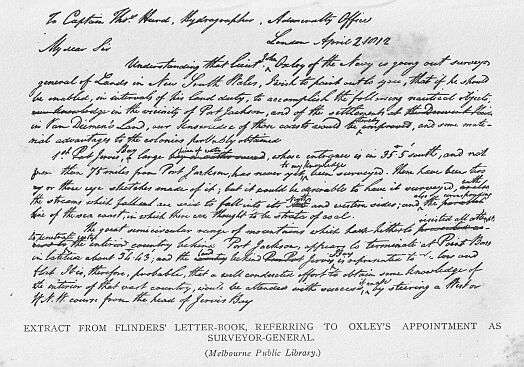 To Captain Thos. Hurd, Hydrographer, Admiralty Office
London April 2 1812
My dear Sir
Understanding that Lieut. Jno. Oxley of the Navy is going out surveyor
general of Lands in New South Wales, I wish to point out to you, that if he should
be enabled, in intervals of his land duty, to accomplish the following nautical objects,
in the vicinity of Port Jackson, and of the settlements at the Derwent
in Van Diemen's Land, our knowledge of those coasts would be improved, and some mate-
rial advantages to the colonies probably obtained
1st. Port Jervis, a large whose entrance is in 35° 5' south, and not
more than 75 miles from Port Jackson, has never to my knowledge been surveyed. There have been two
or three eye sketches made of it; but it would be desirable to have it surveyed, with
the streams which are said to fall into its North and western sides; and also the
line of the sea coast, in which there are thought to be strata of coal.
The great semicircular range of mountains which has hitherto resisted all attempts
to penetrate into the interior country behind Port Jackson, appears to terminate at Point Bass
in latitude about 34° 43', and the country behind Port Jervis Bay is represented to be low and
flat. It is, therefore, probable, that a well conducted effort to obtain some knowledge of
the interior of that vast country, would be attended with success, if made by steering a West or
W.N.W. course from the head of Jervis Bay
EXTRACT FROM FLINDERS' LETTER-BOOK, REFERRING TO OXLEY'S APPOINTMENT AS
SURVEYOR-GENERAL.
(Melbourne Public Library.)